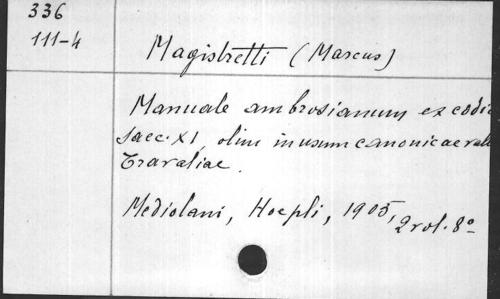 336
111-4
Magistretti (Marcus)
Manuale ambrosianum ex codic
saec. XI, olim in usum canonicae vall
Travaliae.
Mediolani, Hoepli, 1905, 2 vol. 8º